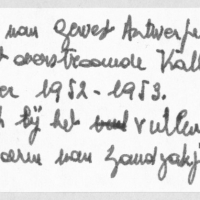 van Gewest Antwerpe
t overstroomde Kall
er 1952-1953.
h bij het vullen
oeren van zandzakj